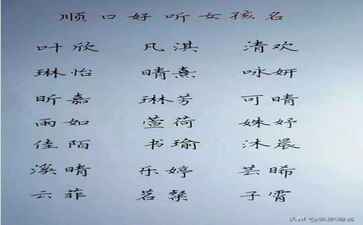 顺口好听女孩名
叶欣 凡淇 清欢
琳怡 晴熹 咏妍
昕嘉 琳芳 可晴
雨如 萱荷 姝妤
佳陌 书瑜 沐晨
溪晴 乐婷 芸晞
云菲 茗棻 子霄